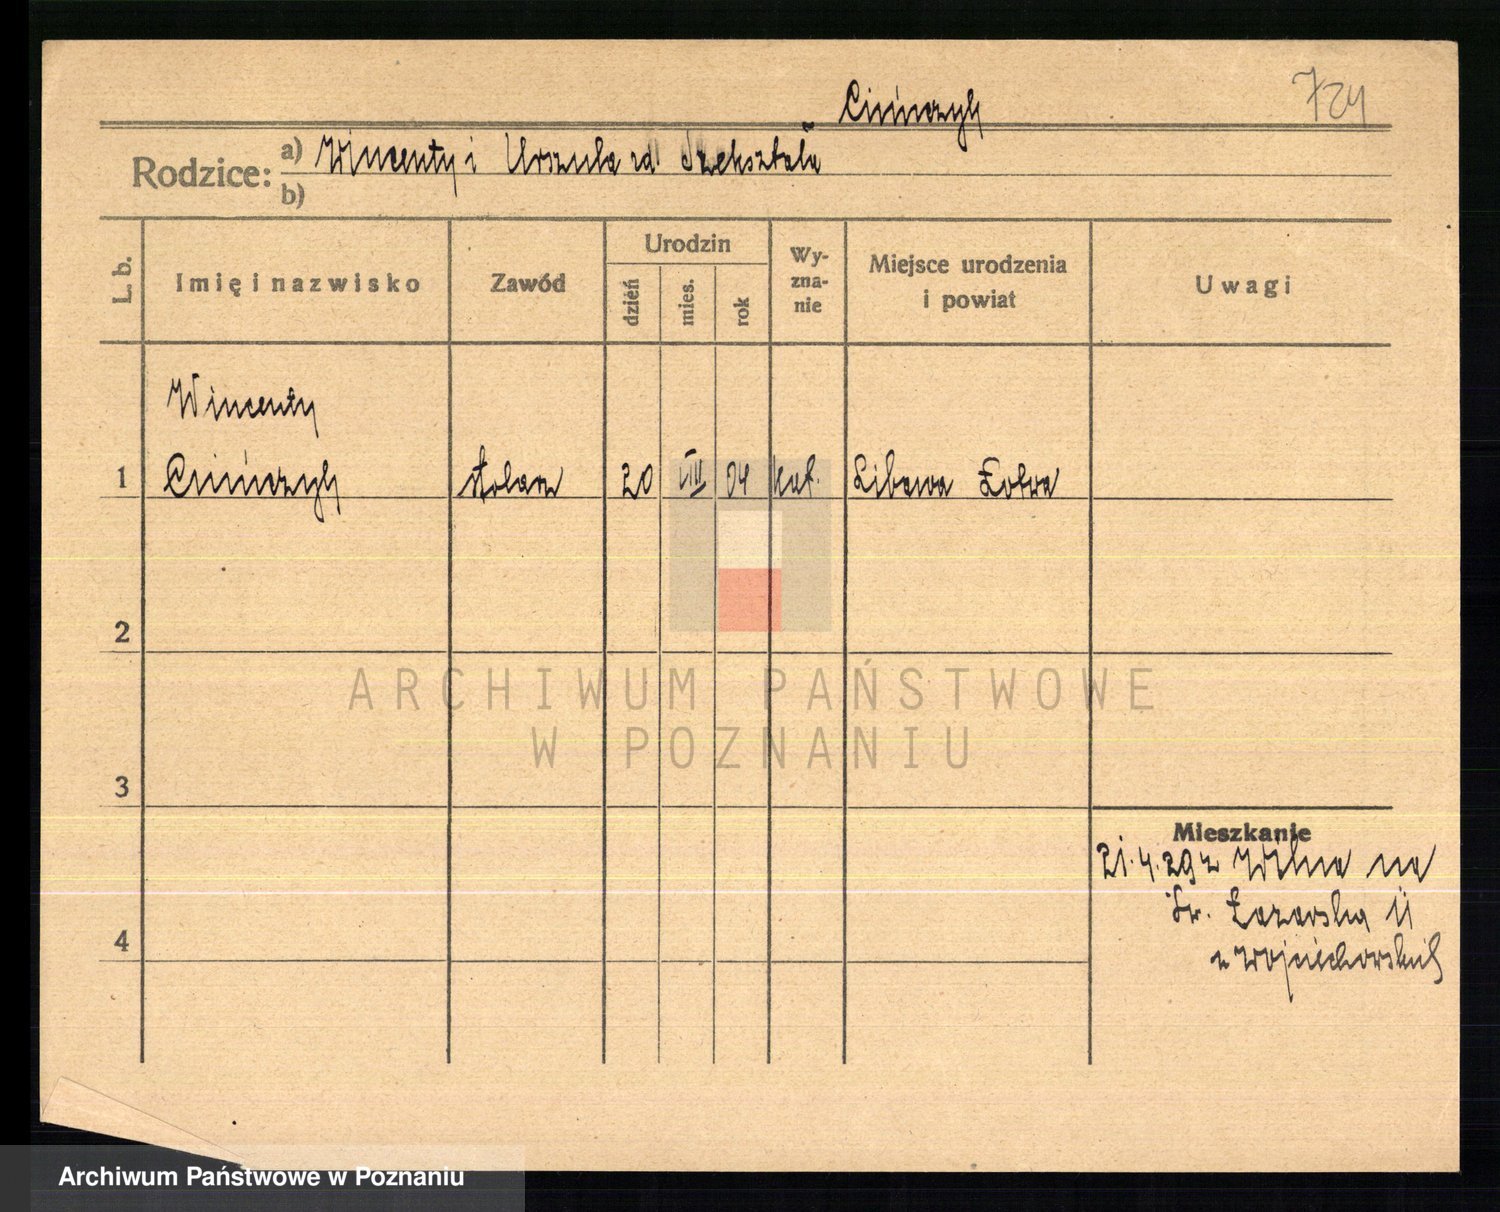 Cimoszyk
724
Rodzice: a) Wincenty i Urszula zd
b)
L. b.
Imię i nazwisko
Zawód
Urodzin
dzień
mies.
rok
Wy-
zna-
nie
Miejsce urodzenia
i powiat
Uwagi
Wincenty
1 stolarz 20 VIII 04 kat. Libawa Łotwa
2
3
4
Mieszkanie
21.4.29 z Wilna na
Śr. Łazarska 11
u Wojciechowskich
ARCHIWUM PAŃSTWOWE
W POZNANIU
Archiwum Państwowe w Poznaniu